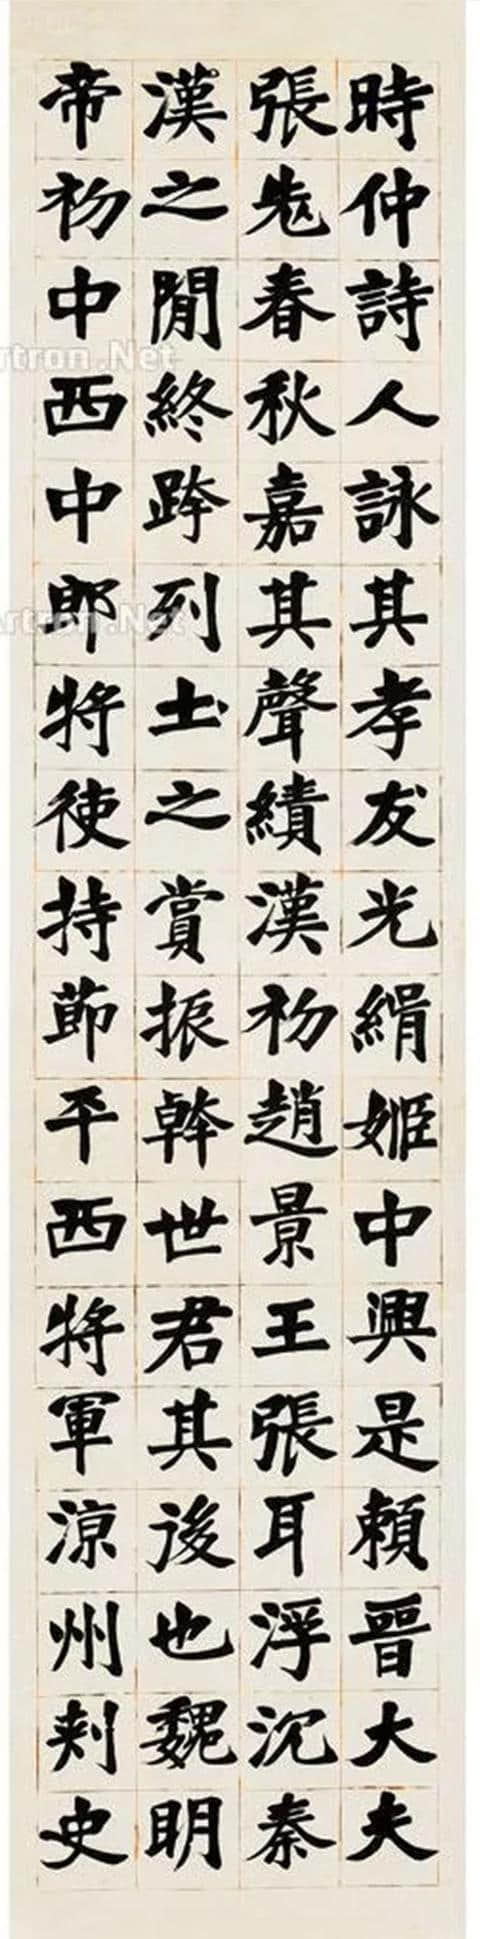 時仲詩人詠其孝友光緝姬中興是賴晉大夫
張老春秋嘉其聲績漢初趙景王張耳浮沉秦
漢之閒終跨列土之賞振幹世君其後也魏明
帝初中西中郎將使持節平西將軍涼州刺史
Artron.Net
Artron.Net